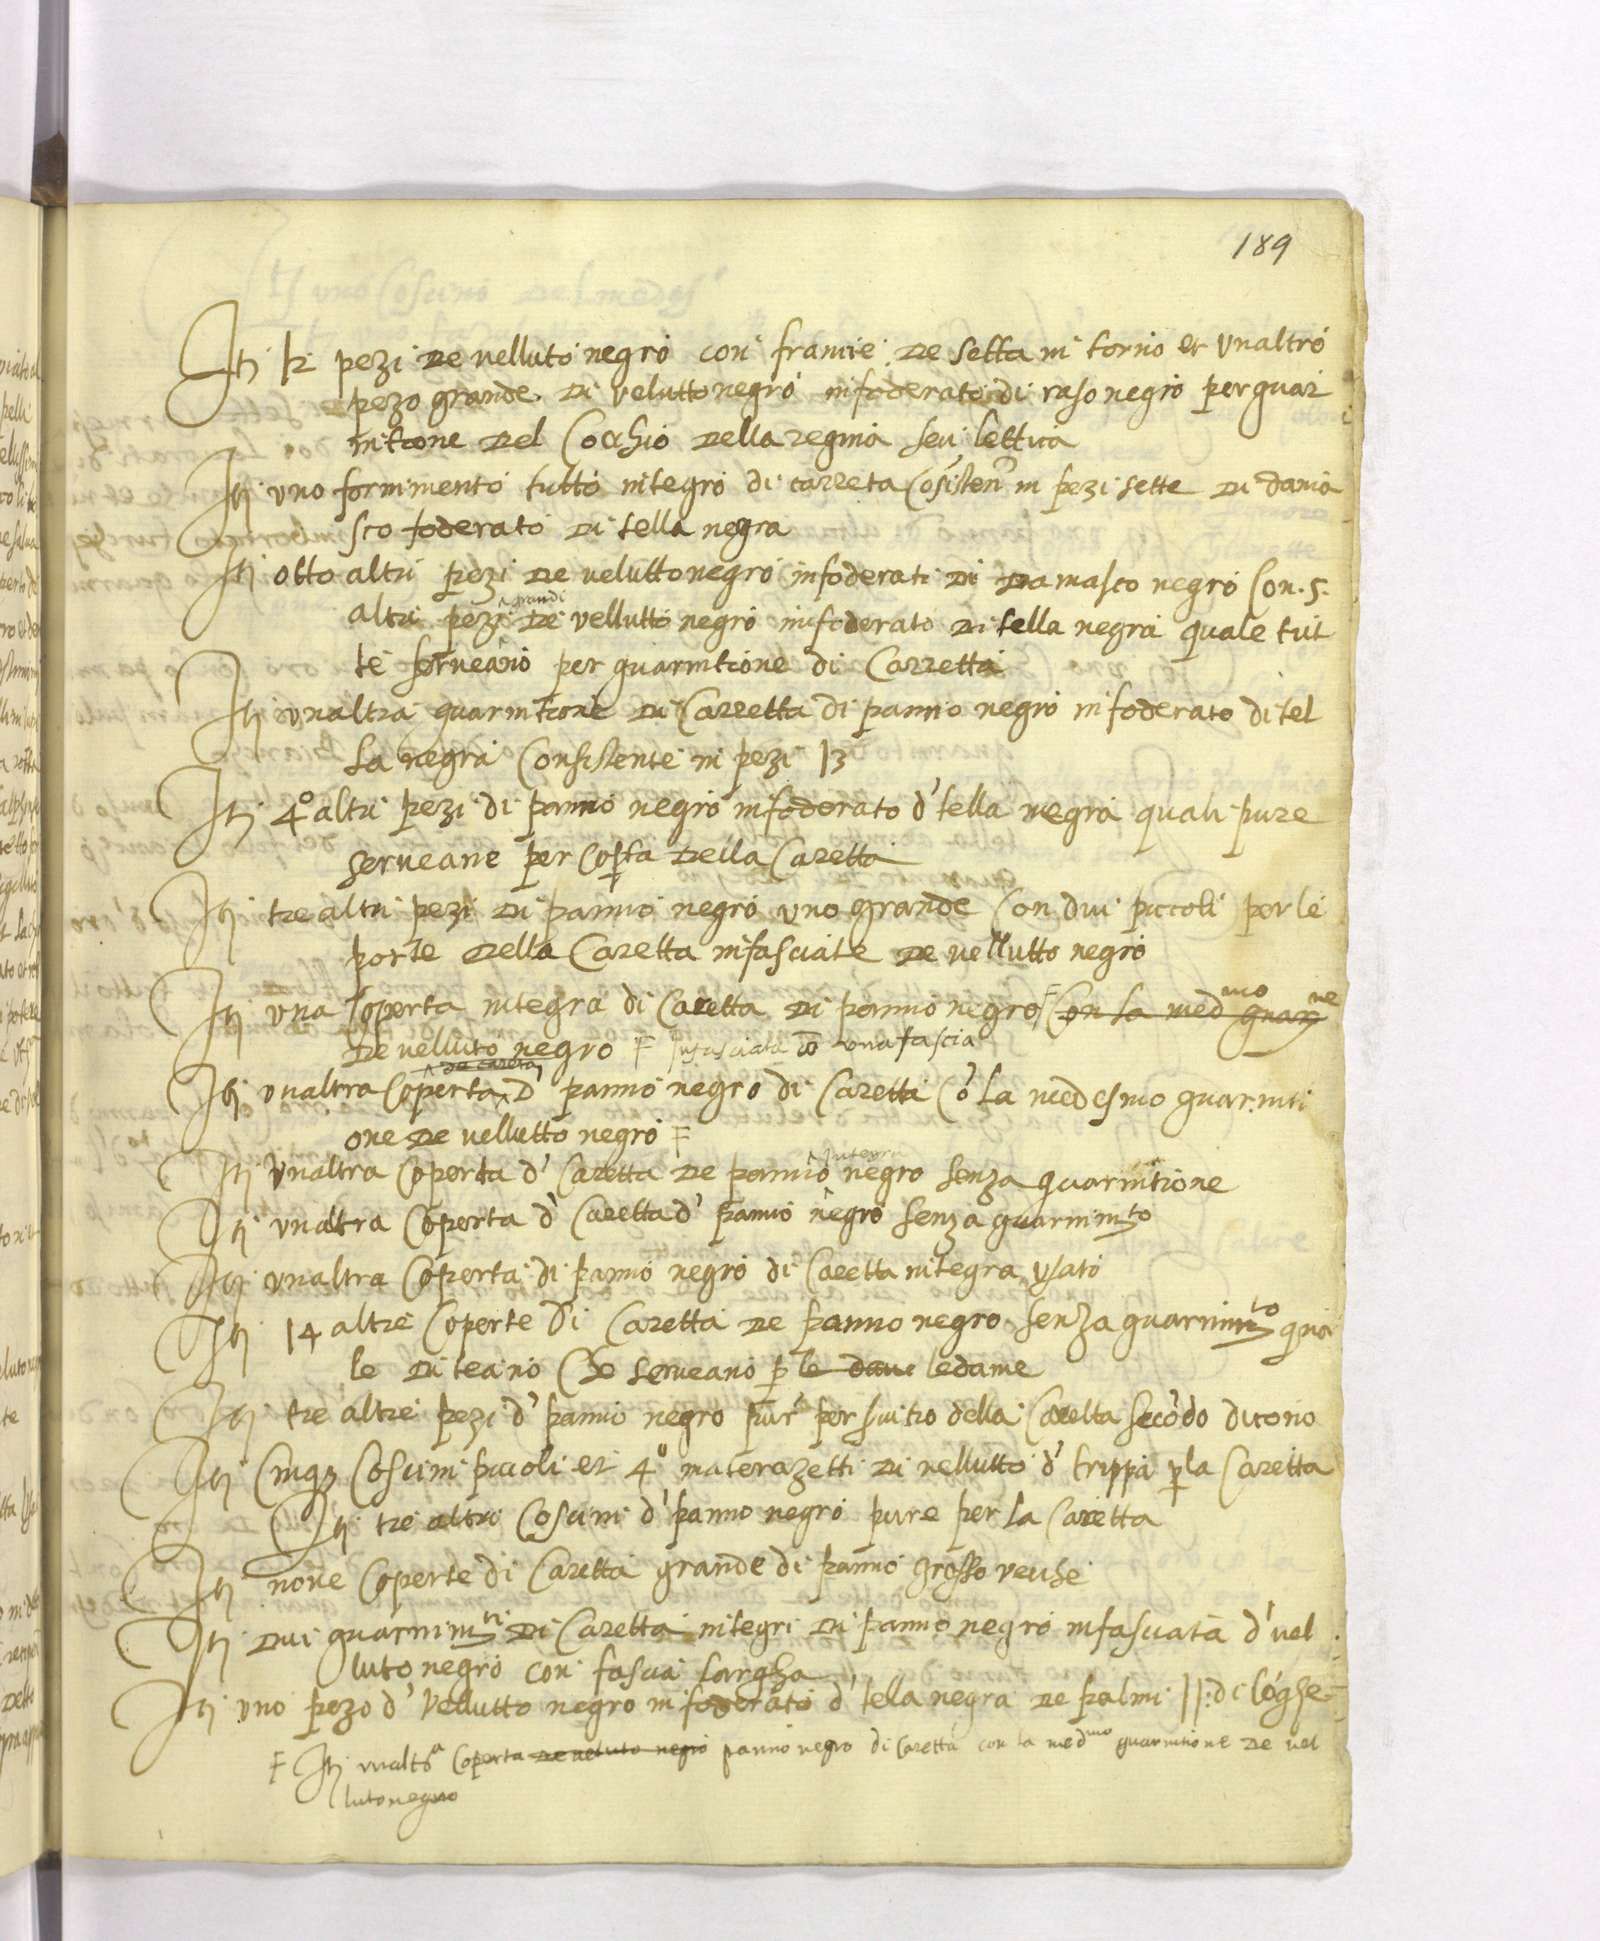 189
Itj 12 pezi de velluto negro con franie de setta in torno et unaltro
pezo grande di velutto negro infoderato di raso negro per guar
nitione del Cocchio della regina seu lettica
Itj uno fornimento tutto integro di carreta Cosisten in pezi sette di dama
sco foderato di tella negra
Itj otto altri pezi de velutto negro infoderati di damasco negro Con .5.
altri pezi grandi de vellutto negro infoderato di tella negra quale tut
te serveano per guarnitione di Carretta
Itj unaltra guarnitione di Carretta di panno negro infoderato di tel
la negra Consistente in pezi 13
Itj 4º altri pezi di panno negro infoderato d' tella negra quali pure
serveane per Copta della Caretta
Itj tre altri pezi di panno negro uno grande Con dui piccoli per le
porte della Caretta infasciate de vellutto negro
Itj una Coperta integra di Caretta di panno negro F Con la medmo guarne
De velluto negro F Infasciata cō una fascia
Itj unaltra Coperta de caretta D' panno negro di Caretta Cō la medesmo guarniti
one de vellutto negro F
Itj Unaltra Coperta d' Caretta de panno integra negro senza guarnitione
Itj unaltra Coperta d' Caretta d' panno negro senza guarnimto
Itj unaltra Coperta di panno negro di Caretta integra usato
Itj 14 altre Coperte di Caretta de panno negro senza guarnimto qua
le diceano Che serveano p le dame le dame
Itj tre altre pezi d' panno negro pur per servitio della Caretta secōdo dicono
Itj Cinqz Coscini piccoli et 4º materazetti di vellutto d' trippa p la Caretta
Itj tre altri Coscini d' panno negro pure per la Caretta
Itj nove Coperte di Caretta grande di panno grosso
Itj dui guarnimti di Caretta integri di panno negro infasciata d' vel
luto negro con fascia largha
Itj uno pezo d' Vellutto negro infoderato d' tella negra de palmi 11: di lōghe=
F Itj unaltra Coperta de veluto negro panno negro di Caretta con la medmo guarnitione de vel
luto negro